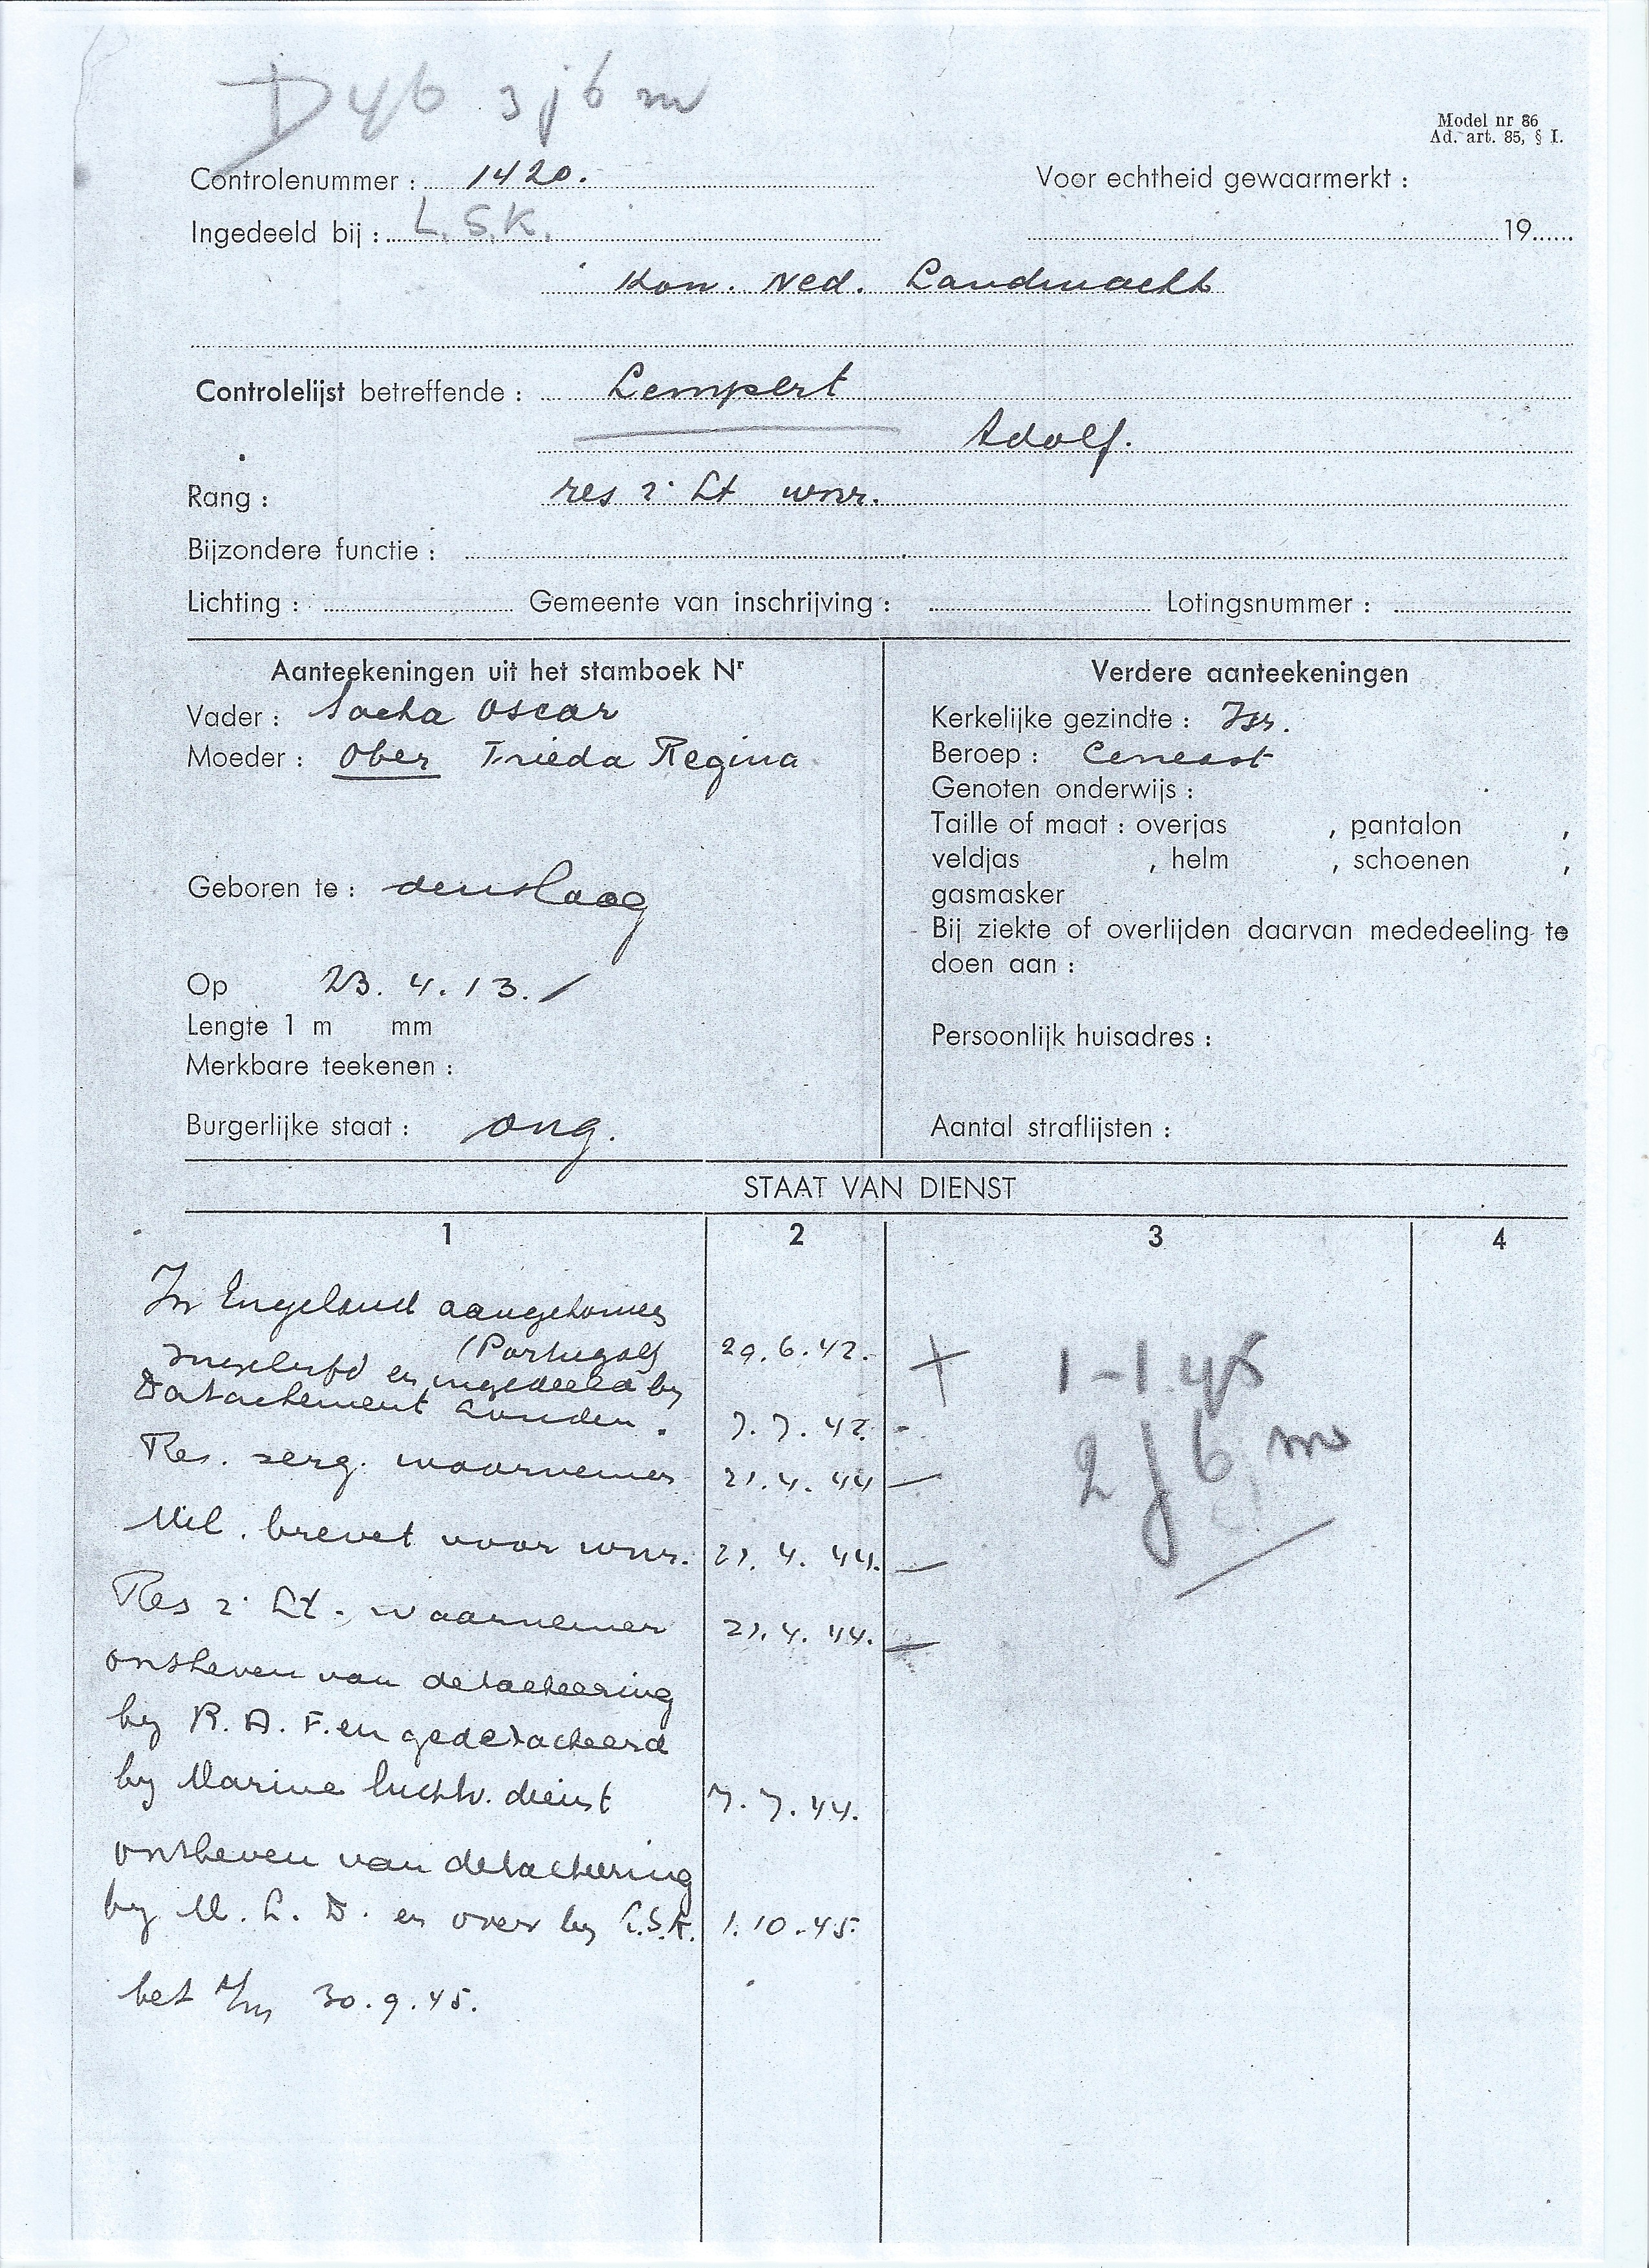 D 46 3 j 6 m
Model nr 86
Ad. art. 85, § I.
Controlenummer : 1420.
Voor echtheid gewaarmerkt :
Ingedeeld bij : L.S.K.
19......
Kon. Ned. Landmacht
Controlelijst betreffende : Lempert
Adolf.
Rang : res 2e Lt wnr.
Bijzondere functie :
Lichting : Gemeente van inschrijving : Lotingsnummer :
Aanteekeningen uit het stamboek Nr
Vader : Sacha Oscar
Moeder : Ober Frieda Regina
Geboren te : den Haag
Op 23. 4. 13.
Lengte 1 m mm
Merkbare teekenen :
Burgerlijke staat : ong.
Verdere aanteekeningen
Kerkelijke gezindte : Isr.
Beroep :
Genoten onderwijs :
Taille of maat : overjas , pantalon ,
veldjas , helm , schoenen ,
gasmasker
Bij ziekte of overlijden daarvan mededeeling te
doen aan :
Persoonlijk huisadres :
Aantal straflijsten :
STAAT VAN DIENST
1 2 3 4
In Engeland aangekomen
(Portugal) 29.6.42. +
ingelijfd en ingedeeld by
Detachement Londen. 7.7.42. -
Res. serg. waarnemer 21.4.44 -
Mil. brevet voor wnr. 21.4.44. -
Res 2e Lt. waarnemer 21.4.44. -
ontheven van detacheering
by R.A.F. en gedetacheerd
by Marine luchtv. dienst 7.7.44.
ontheven van detacheering
by M.L.D. en over by L.S.K. 1.10.45.
bet t/m 30.9.45.
1-1-45
2 j 6 m